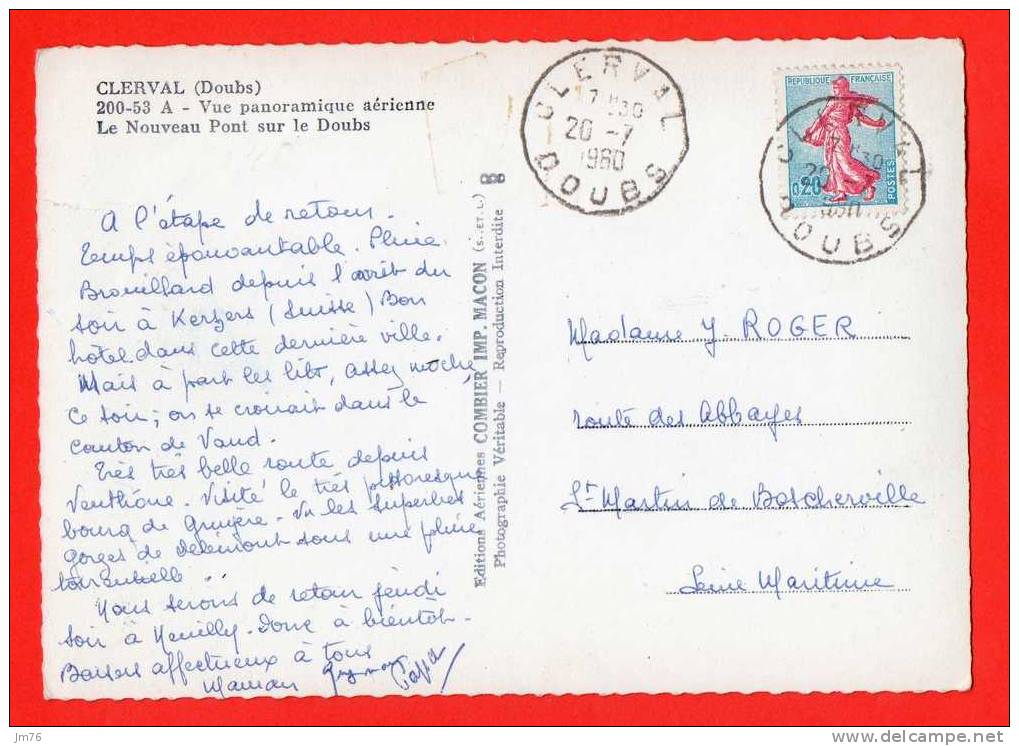 CLERVAL (Doubs)
200-53 A - Vue panoramique aérienne
Le Nouveau Pont sur le Doubs
A l'étape de retour.
Temps épouvantable. Pluie
Brouillard depuis l'arrêt du
soir à Kerzers (Suisse) Bon
hôtel dans cette dernière ville.
Mais à part les lits, assez moche
ce soir; on se croirait dans le
canton de Vaud.
Très très belle route depuis
Venthône. Visité le très pittoresque
bourg de Gruyère. Vu les superbes
gorges de Delémont sous une pluie
torrentielle...
Nous serons de retour jeudi
soir à Neuilly. Donc à bientôt.
Baisers affectueux à tous
Maman Papa
Editions Aériennes COMBIER IMP. MACON (S.-ET-L.)
Photographie Véritable — Reproduction Interdite
CLERVAL
17H30
20 -7
1960
DOUBS
REPUBLIQUE FRANÇAISE
0,20
POSTES
CLERVAL
17H30
20
DOUBS
Madame J. ROGER
route des Abbayes
St Martin de Boscherville
Seine Maritime
jm76
www.delcampe.net